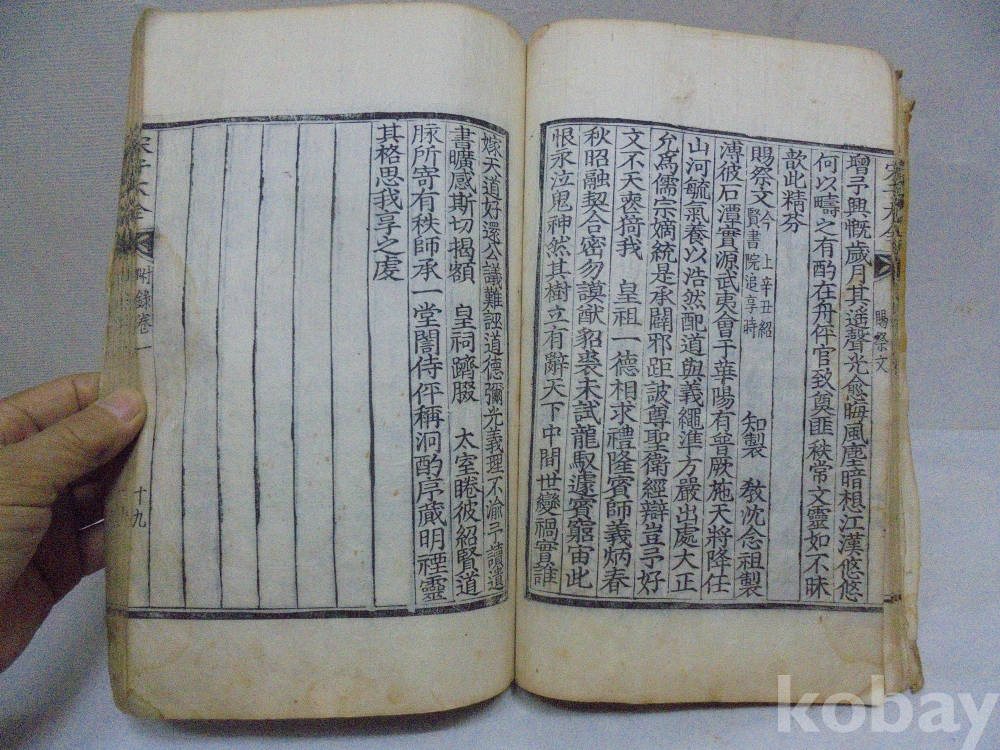 增予興慨歲月其遥聲光愈晦風塵暗想江漢悠悠
何以疇之有酌在舟伻官致奠匪秩常文靈如不昧
歆此精芬
賜祭文今上辛丑紹
賢書院追享時 知製 敎沈念祖製
溥彼石潭實源武夷會于華陽有曾厥施天將降任
山河毓氣養以浩然配道與義繩準方嚴出處大正
允爲儒宗嫡統是承闢邪距詖尊聖衛經辯豈予好
文不天喪猗我 皇祖一德相求禮隆賓師義炳春
秋昭融契合密勿謨猷貂裘未試龍馭遽賓窮宙此
恨永泣鬼神然其樹立有辭天下中間世變禍實誰
嫁天道好還公議難誣道德彌光義理不渝予讀遺
書曠感斯切揭額 皇祠躋腏 太室睠彼紹賢道
脉所寄有秩師承一堂誾侍伻稱泂酌序蕆明禋靈
其格思我享之虔
賜祭文
宋子大全
附錄卷一
十九
kobay